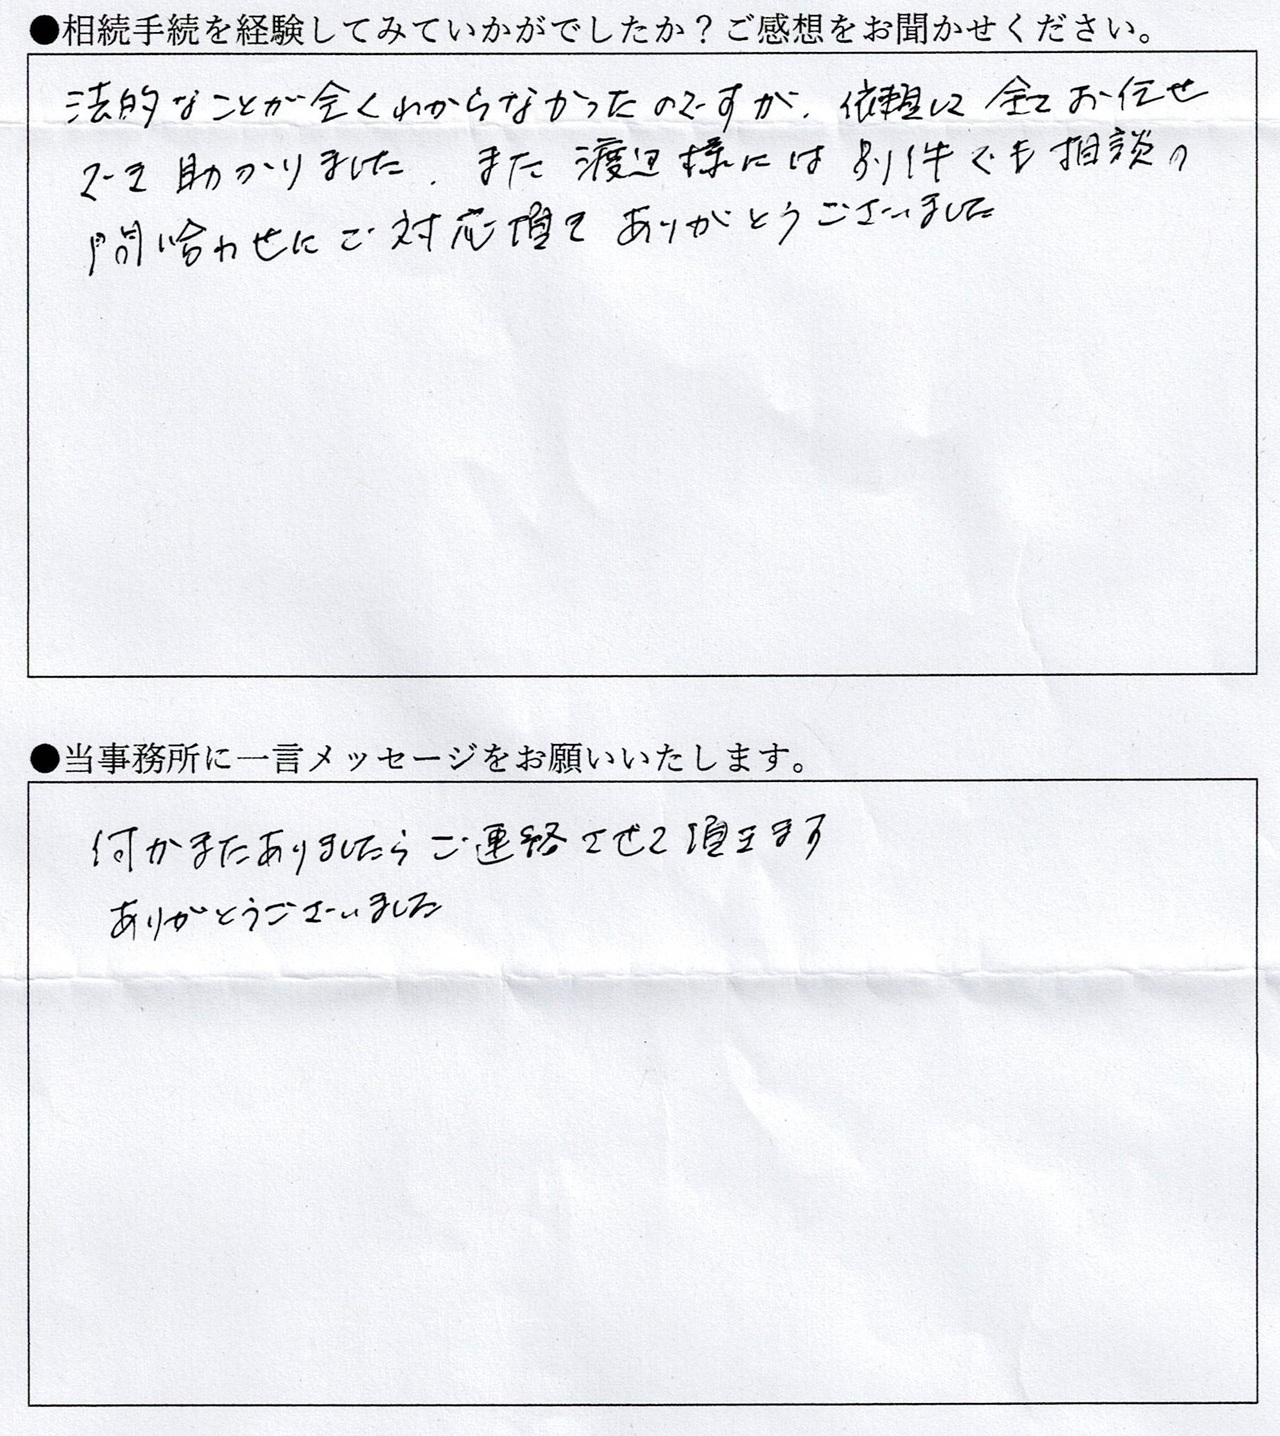 ●相続手続を経験してみていかがでしたか？ご感想をお聞かせください。
法的なことが全くわからなかったのですが、依頼して全てお任せ
でき助かりました。また渡辺様には別件でも相談の
問い合わせにご対応頂きありがとうございました
●当事務所に一言メッセージをお願いいたします。
何かまたありましたらご連絡させて頂きます
ありがとうございました